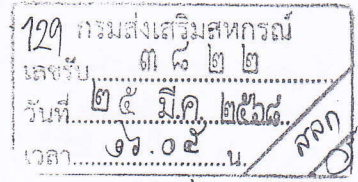 129 กรมส่งเสริมสหกรณ์
เลขรับ ๓๘๒๒
วันที่ ๒๕ มี.ค. ๒๕๖๘
เวลา ๑๖.๐๕ น.
สลก